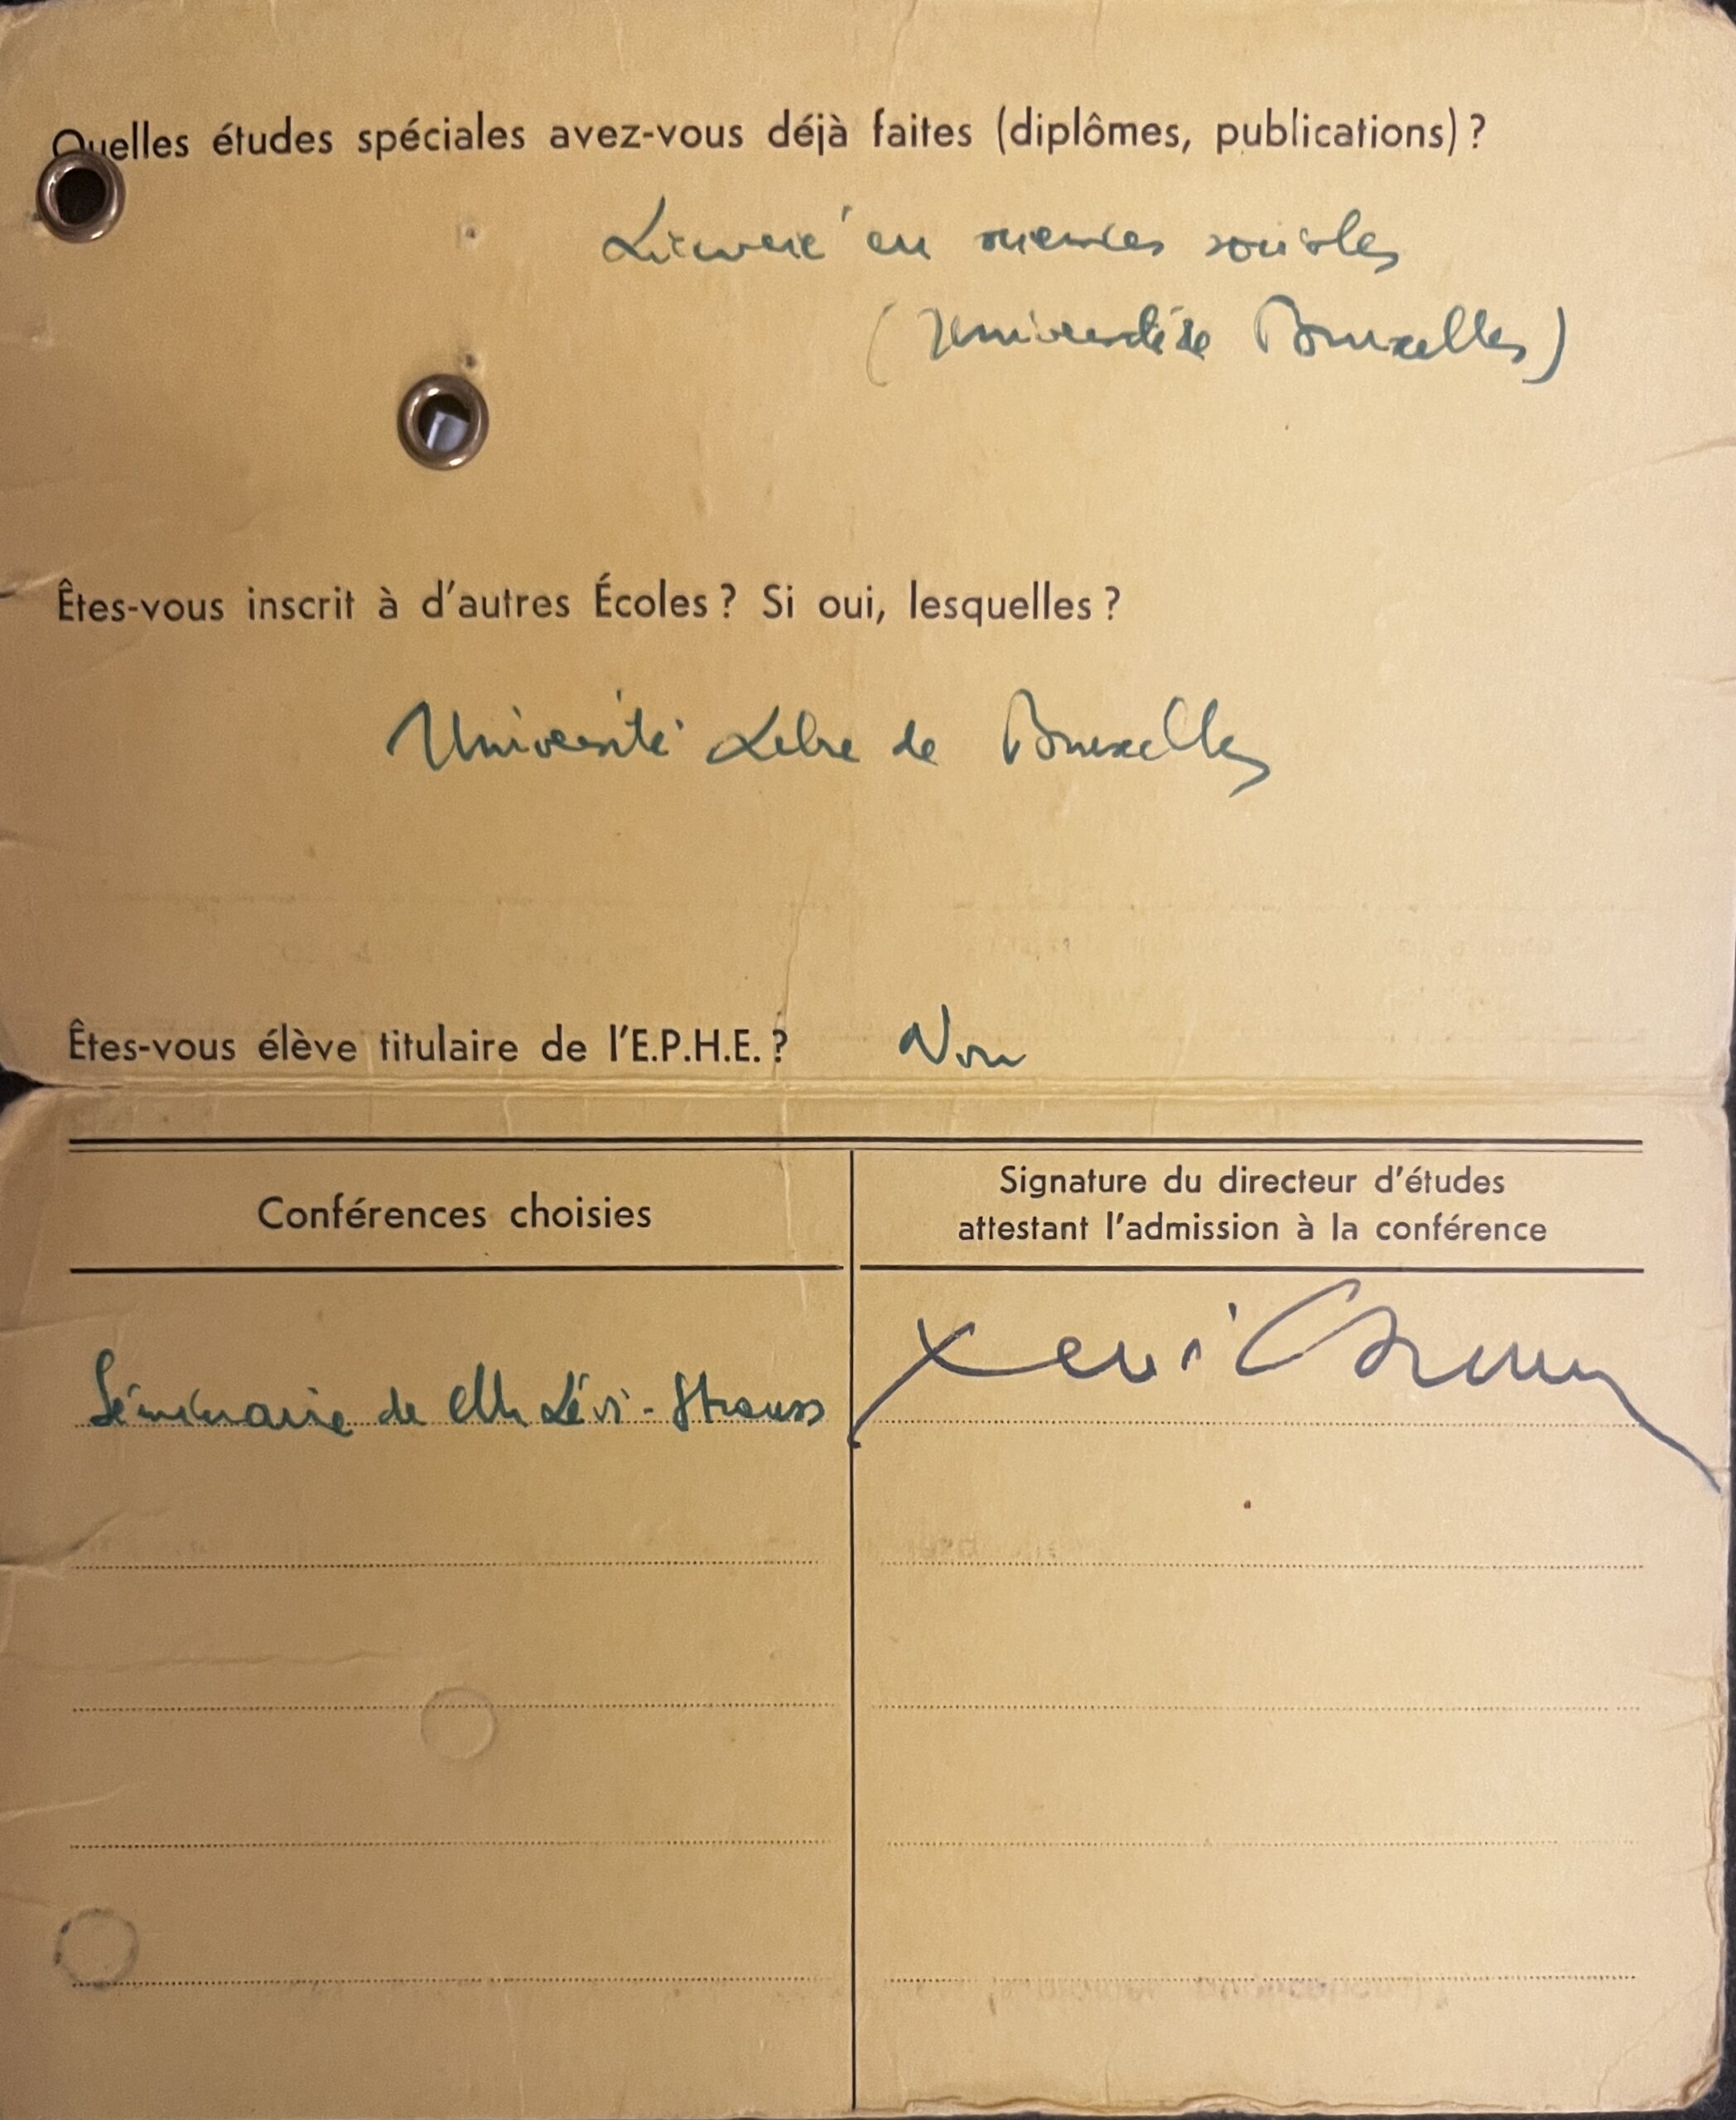 Quelles études spéciales avez-vous déjà faites (diplômes, publications) ?
Licencié en sciences sociales
(Université de Bruxelles)
Êtes-vous inscrit à d'autres Écoles ? Si oui, lesquelles ?
Université Libre de Bruxelles
Êtes-vous élève titulaire de l'E.P.H.E. ? Non
Conférences choisies
Signature du directeur d'études
attestant l'admission à la conférence
Séminaire de M. Lévi-Strauss